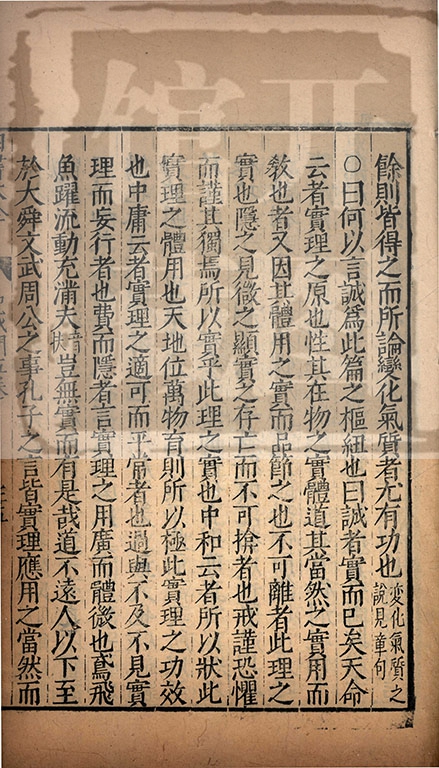 餘則皆得之而所論變化氣質者尤有功也變化氣質之說見章句
○曰何以言誠爲此篇之樞紐也曰誠者實而已矣天命
云者實理之原也性其在物之實體道其當然之實用而
敎也者又因其體用之實而品節之也不可離者此理之
實也隱之見微之顯實之存亡而不可揜者也戒謹恐懼
而謹其獨焉所以實乎此理之實也中和云者所以狀此
實理之體用也天地位萬物育則所以極此實理之功效
也中庸云者實理之適可而平常者也過與不及不見實
理而妄行者也費而隱者言實理之用廣而體微也鳶飛
魚躍流動充滿夫豈無實而有是哉道不遠人以下至
於大舜文武周公之事孔子之言皆實理應用之當然而